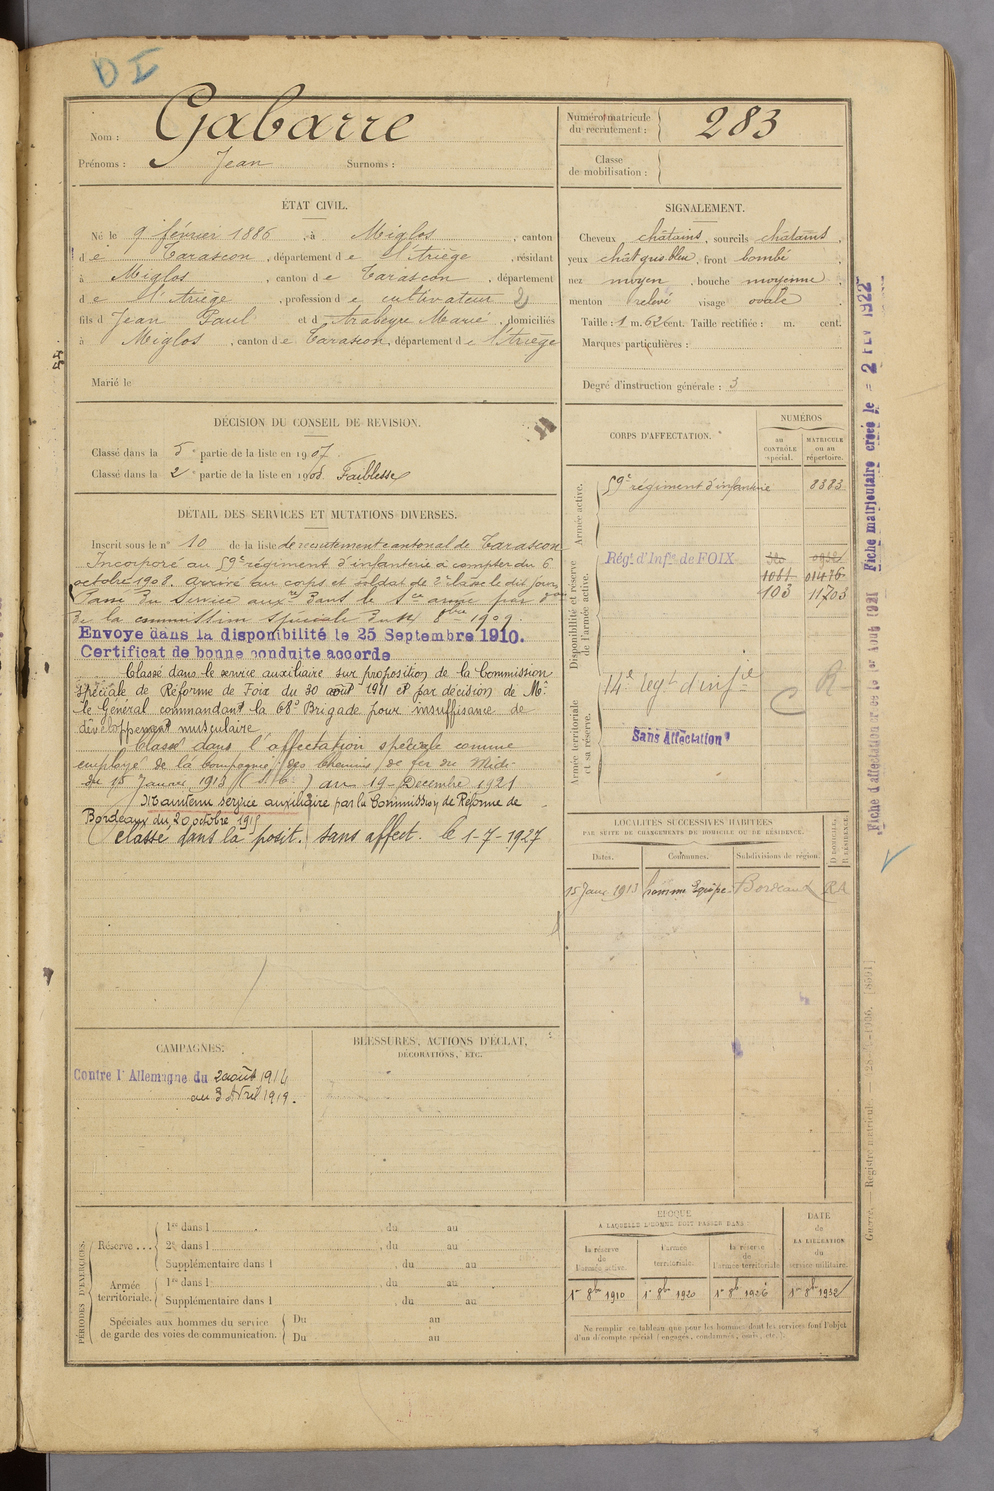 D I
Nom : Gabarre
Prénoms : Jean Surnoms :
Numéro matricule
du recrutement : 283
Classe
de mobilisation :
ÉTAT CIVIL.
Né le 9 février 1886, à Miglos, canton
de Tarascon, département de l'Ariège, résidant
à Miglos, canton de Tarascon, département
de l'Ariège, profession de cultivateur
fils de Jean Paul et d'Arabeyre Marie, domiciliés
à Miglos, canton de Tarascon, département de l'Ariège
Marié le
SIGNALEMENT.
Cheveux châtains, sourcils châtains,
yeux chât gris bleu, front bombé
nez moyen, bouche moyenne
menton relevé visage ovale
Taille : 1 m. 62 cent. Taille rectifiée : m. cent.
Marques particulières :
Degré d'instruction générale : 3
DÉCISION DU CONSEIL DE REVISION.
Classé dans la 5e partie de la liste en 1907.
Classé dans la 2e partie de la liste en 1908. Faiblesse
DÉTAIL DES SERVICES ET MUTATIONS DIVERSES.
Inscrit sous le n° 10 de la liste de recrutement cantonal de Tarascon
Incorporé au 59e régiment d'infanterie à compter du 6
octobre 1908. Arrivé au corps et soldat de 2e classe le dit jour
Passé du Service auxre dans le Sce armé par don
de la commission spéciale du 8bre 1909.
Envoyé dans la disponibilité le 25 Septembre 1910.
Certificat de bonne conduite accordé
Classé dans le service auxiliaire sur proposition de la Commission
spéciale de Réforme de Foix du 30 août 1911 et par décision de Mr
le Général commandant la 68e Brigade pour insuffisance de
développement musculaire
Classé dans l'affectation spéciale comme
employé de la Compagnie des Chemins de fer du Midi
du 15 Janvier 1913 au 19 Decembre 1921
Maintenu service auxiliaire par la Commission de Réforme de
Bordeaux du 20 octobre 1915
Classé dans la posit. sans affect. le 1-7-1927
CORPS D'AFFECTATION.
NUMÉROS
au
CONTRÔLE
spécial.
MATRICULE
ou au
répertoire.
Armée active.
59e régiment d'infanterie 8383
Disponibilité et réserve
de l'armée active.
Régt. d'Infie de FOIX
1081 01476
103 11703
Armée territoriale
et sa réserve.
14e regt d'infie C R
Sans Affectation
LOCALITÉS SUCCESSIVES HABITÉES
PAR SUITE DE CHANGEMENTS DE DOMICILE OU DE RÉSIDENCE.
Dates. Communes. Subdivisions de région. D DOMICILE. R RÉSIDENCE.
15 Janv 1913 homme Equipe Bordeaux RA
CAMPAGNES.
Contre l'Allemagne du 2 août 1914
au 3 Avril 1919.
BLESSURES, ACTIONS D'ÉCLAT,
DÉCORATIONS, ETC.
PÉRIODES D'EXERCICES.
Réserve ...
1re dans l du au
2e dans l du au
Supplémentaire dans l du au
Armée
territoriale.
1re dans l du au
Supplémentaire dans l du au
Spéciales aux hommes du service
de garde des voies de communication.
Du au
Du au
ÉPOQUE
À LAQUELLE L'HOMME DOIT PASSER DANS :
la réserve
de
l'armée active.
l'armée
territoriale.
la réserve
de
l'armée territoriale.
DATE
de
LA LIBÉRATION
du
service militaire.
1er 8b 1910 1er 8b 1920 1er 8b 1926 1er 8b 1932
Ne remplir ce tableau que pour les hommes dont les services font l'objet
d'un décompte spécial (engagés, condamnés, omis, etc.).
Fiche d'affectation créée le 1er Août 1921 Fiche matriculaire créée le 2 FEV 1922
Guerre. — Registre matricule. — 1906.